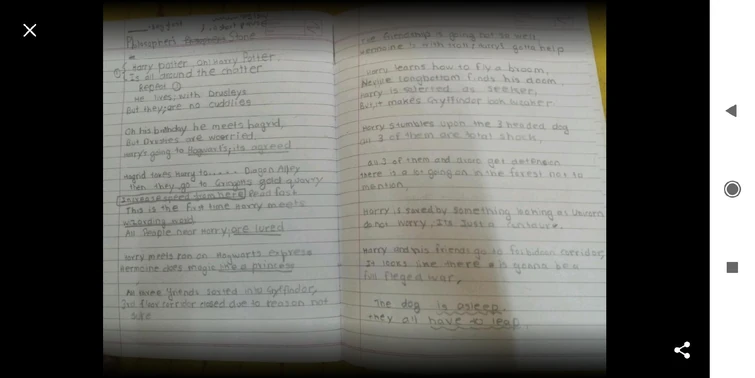 Philosophers Stone
Harry potter oh! Harry Potter.
Is all around the chatter
Repeat ①
He lives; with Drusleys
But they; are no cuddlies
On his birthday he meets hagrid,
But are worried.
Harry's going to Hogwart's, its agreed
Hagrid takes Harry to......
then they go to gold quarry
Increase speed from here Read fast
This is the first time Harry meets
wizarding world
All People near Harry, are lured
Harry meets ron on Hogwarts express
Hermoine does magic like a princess
All three friends sorted into
3rd floor corridor closed due to reason not
sure
friendship is going not so well
Hermoine is with troll; Harry; gotta help
Harry learns how to fly a broom,
Neville longbottom finds his doom.
Harry is selected as seeker,
But, it makes
Harry stumbles upon the 3 headed dog
all 3 of them are total shock,
All 3 of them and get detension
there is a lot going on in the forest not to
mention,
Harry is saved by something looking as
do not worry, Its Just a
Harry and his friends go to forbidden corridor,
It looks like there is gonna be a
full fleged war,
The dog is asleep.
they all have to leap.